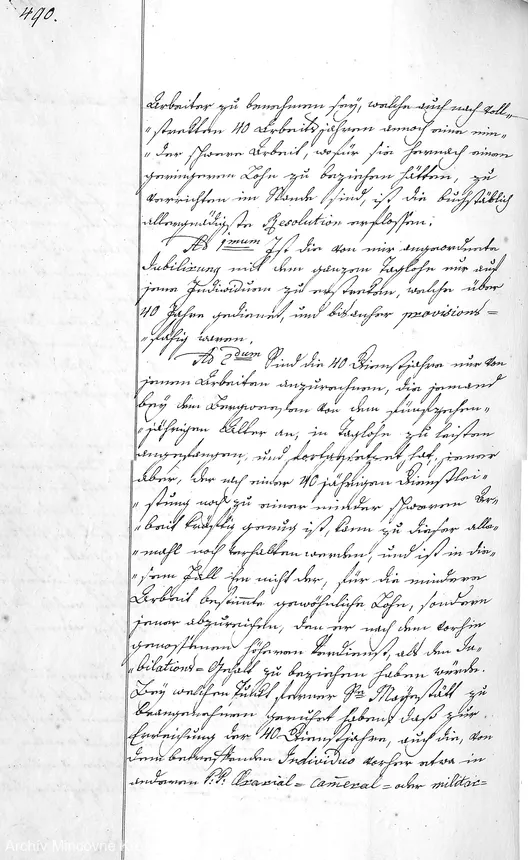 490.
Arbeiter zu benehmen sey, welche auch nach voll-
"streckten 40 Arbeitsjahren annoch eine min-
"der schwere Arbeit, wofür sie hernach einen
geringeren Lohn zu beziehen hätten, zu
verrichten im Stande sind, ist die buchstäblich
allergnädigste Resolution erflossen:
Ad 1mum Ist die von mir angeordnete
Jubilirung mit dem ganzen Taglohn nur auf
jene Individuen zu erstrecken, welche über
40 Jahre gedienet, und bisanher provisions=
"fähig waren.
Ad 2dum Sind die 40 Dienstjahre nur von
jenen Arbeiten anzurechnen, die jemand
bey dem Bergwesen von dem fünfzehen-
"jährigen Alter an, in Taglohn zu leisten
angefangen, und fortgesetzet hat, jener
aber, der nach einer 40 jährigen Dienstlei-
"stung noch zu einer minder schweren Ar-
"beit kräftig genug ist, kann zu dieser alle-
"mahl noch verhalten werden, und ist in die-
"sem Fall ihm nicht der, für die mindere
Arbeit bestimte gewöhnliche Lohn, sondern
jener abzureichen, den er nach dem vorhin
genossenen höheren Verdienst, als den Ju-
"bilations=Gehalt zu beziehen haben würde.
Bey welchen Punkt ferner Se Mayestätt zu
beangenehmen geruhet haben, daß zur
Erreichung der 40 Dienstjahre, auch die, von
dem betreffenden Individuo vorher etwa in
anderen k: k: Aerarial= Cameral= oder militär=
Archiv Mindovne K